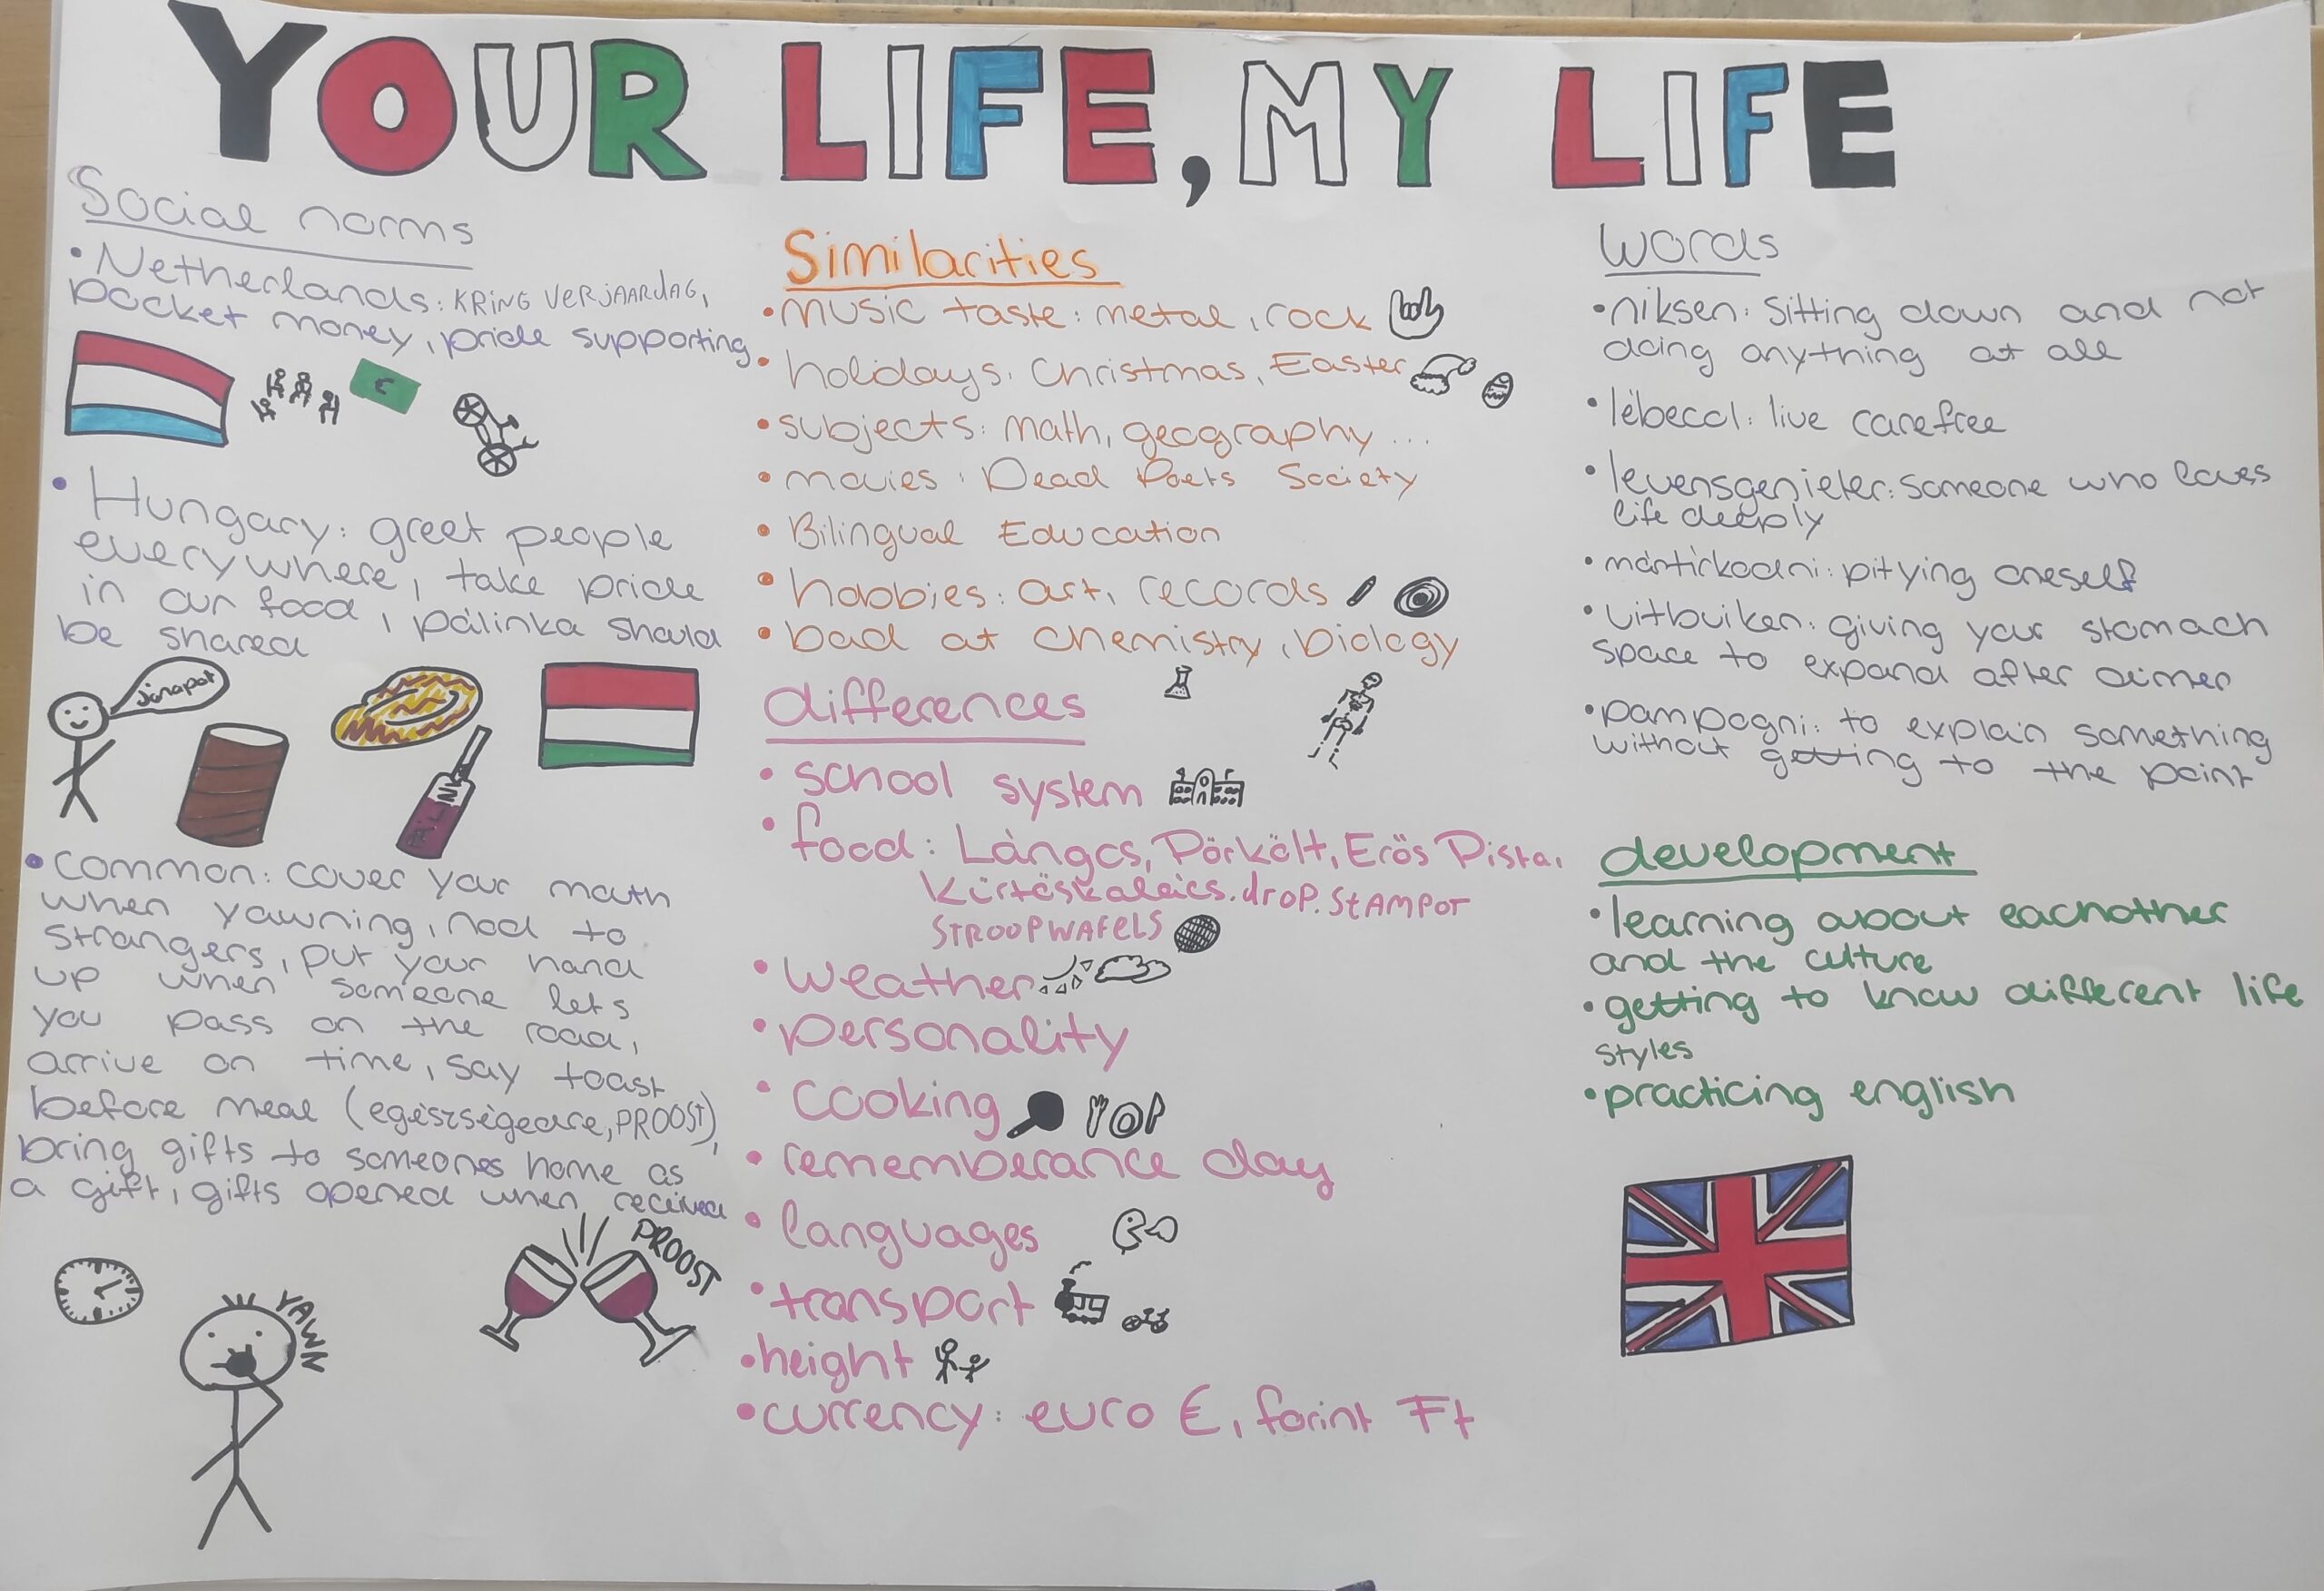 YOUR LIFE, MY LIFE
Social norms
• Netherlands: KRING VERJAARDAG,
pocket money, pride supporting
€
• Hungary: greet people
everywhere, take pride
in our food, pálinka should
be shared
Jónapot
PÁLINKA
• common: cover your mouth
when yawning, nod to
strangers, put your hand
up when someone lets
you pass on the road,
arrive on time, say toast
before meal (egészségedre, PROOST),
bring gifts to someones home as
a gift, gifts opened when received
PROOST
YAWN
Similarities
• music taste: metal, rock
• holidays: Christmas, Easter
• subjects: math, geography ...
• movies: Dead Poets Society
• Bilingual Education
• hobbies: art, records
• bad at chemistry, biology
differences
• school system
• food: Làngos, Pörkölt, Erős Pista,
Kürtőskalács. drop. StAMPOT
STROOPWAFELS
• weather
• personality
• cooking
• rememberance day
• languages
• transport
• height
• currency: euro €, forint Ft
words
• niksen: sitting down and not
doing anything at all
• lébecol: live carefree
• levensgenieter: someone who loves
life deeply
• mártírkodni: pitying oneself
• uitbuiken: giving your stomach
space to expand after dinner
• pampogni: to explain something
without getting to the point
development
• learning about eachother
and the culture
• getting to know different life
styles
• practicing english